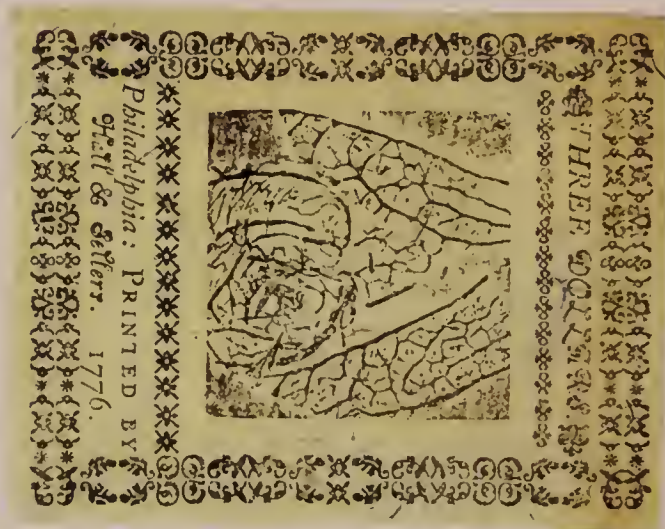 THREE DOLLARS.
Philadelphia: PRINTED BY
Hall & Sellers. 1776.